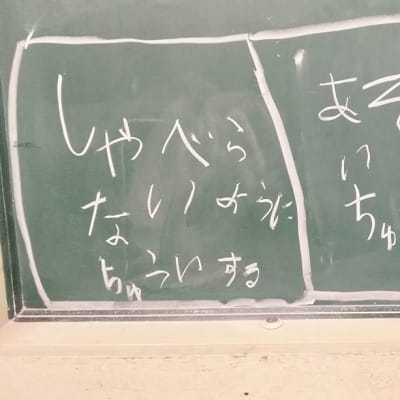 しゃべら
ないように
ちゅういする
あそ
い
ちゅ